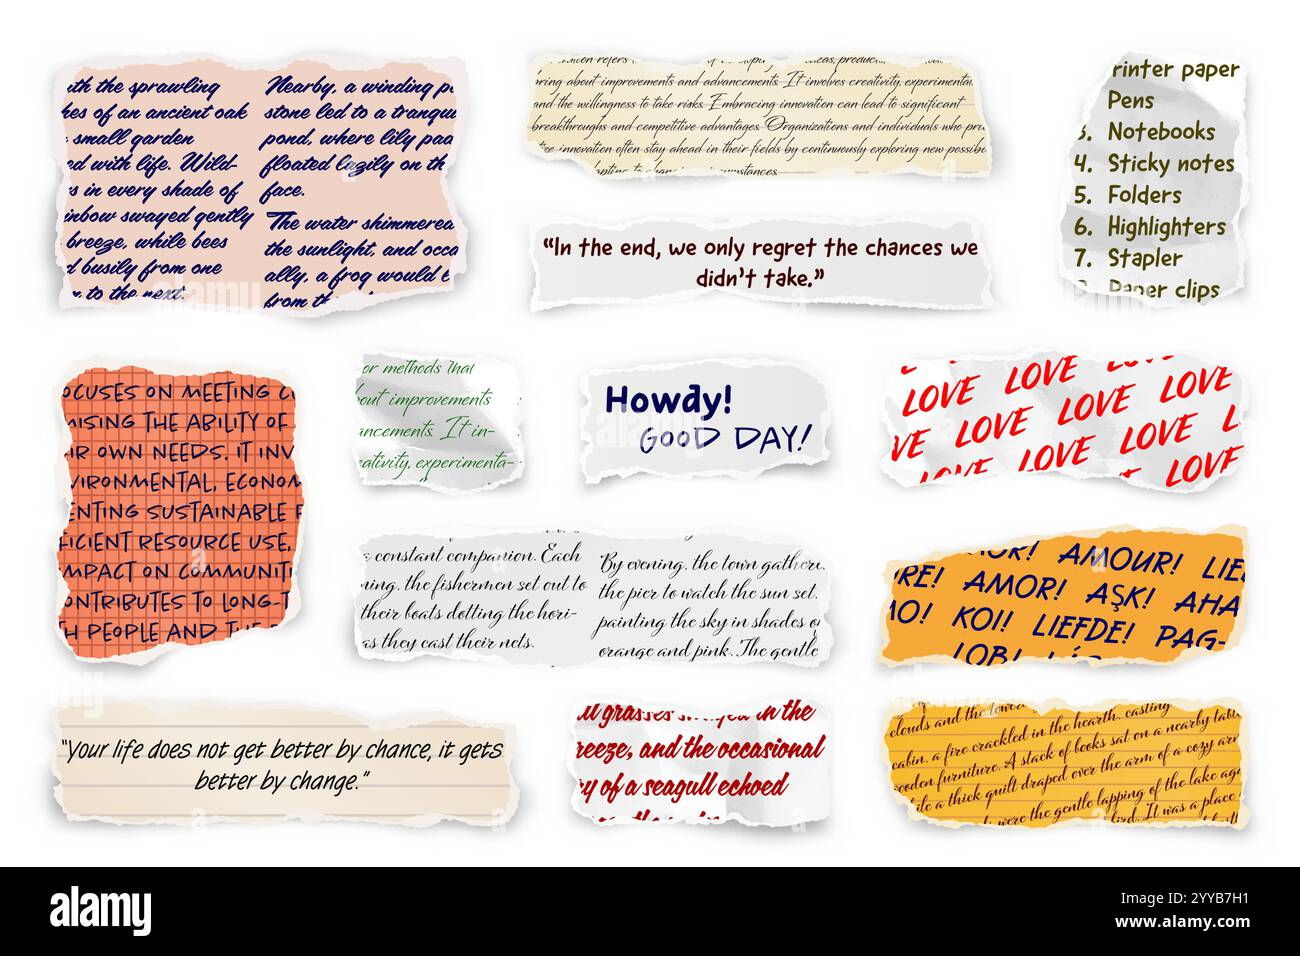 the sprawling
of an ancient oak
small garden
with life. Wild-
s in every shade of
swayed gently
breeze, while bees
busily from one
to the next.
Nearby, a winding
stone led to a
pond, where lily
floated lazily on
face.
The water
the sunlight, and
ally, a frog would
from
refers
about improvements and advancements. It involves creativity,
and the willingness to take risks. Embracing innovation can lead to significant
breakthroughs and competitive advantages. Organizations and individuals who
innovation often stay ahead in their fields by continuously exploring new
to
"In the end, we only regret the chances we
didn't take."
rinter paper
Pens
3. Notebooks
4. Sticky notes
5. Folders
6. Highlighters
7. Stapler
Paper clips
OCUSES ON MEETING
MISING THE ABILITY OF
IR OWN NEEDS. IT INV
VIRONMENTAL, ECONOM
ENTING SUSTAINABLE
FICIENT RESOURCE USE,
MPACT ON COMMUNIT
ONTRIBUTES TO LONG-T
H PEOPLE AND THE
or methods that
bout improvements
ancements. It in-
ativity, experimenta-
Howdy!
GOOD DAY!
LOVE LOVE LOVE LOVE
LOVE LOVE LOVE LOVE
LOVE LOVE LOVE LOVE
constant companion. Each
ning, the fishermen set out to
their boats dotting the hori-
as they cast their nets.
By evening, the town gathere
the pier to watch the sun set,
painting the sky in shades
orange and pink. The gentle
AMOUR! LIE
RE! AMOR! AŞK! AHA
MO! KOI! LIEFDE! PAG-
LOB!
"Your life does not get better by chance, it gets
better by change."
grasses swayed in the
reeze, and the occasional
y of a seagull echoed
clouds and the
cabin, a fire crackled in the hearth, casting
ooden furniture. A stack of books sat on a nearby
while a thick quilt draped over the arm of a cozy
were the gentle lapping of the lake
bird. It was a place
alamy
Image ID: 2YYB7H1
www.alamy.com